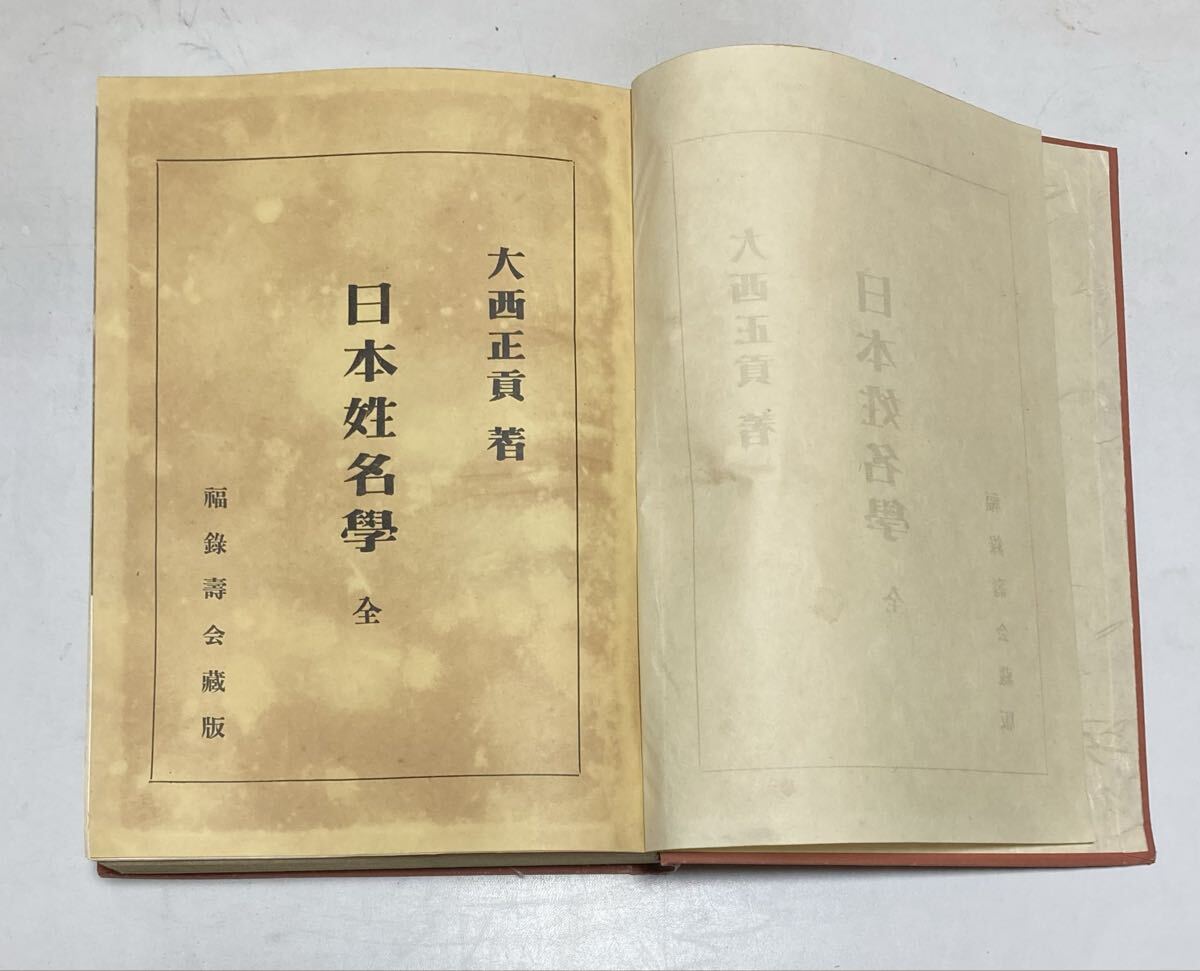 大西正貢 著
日本姓名學 全
福錄壽会藏版